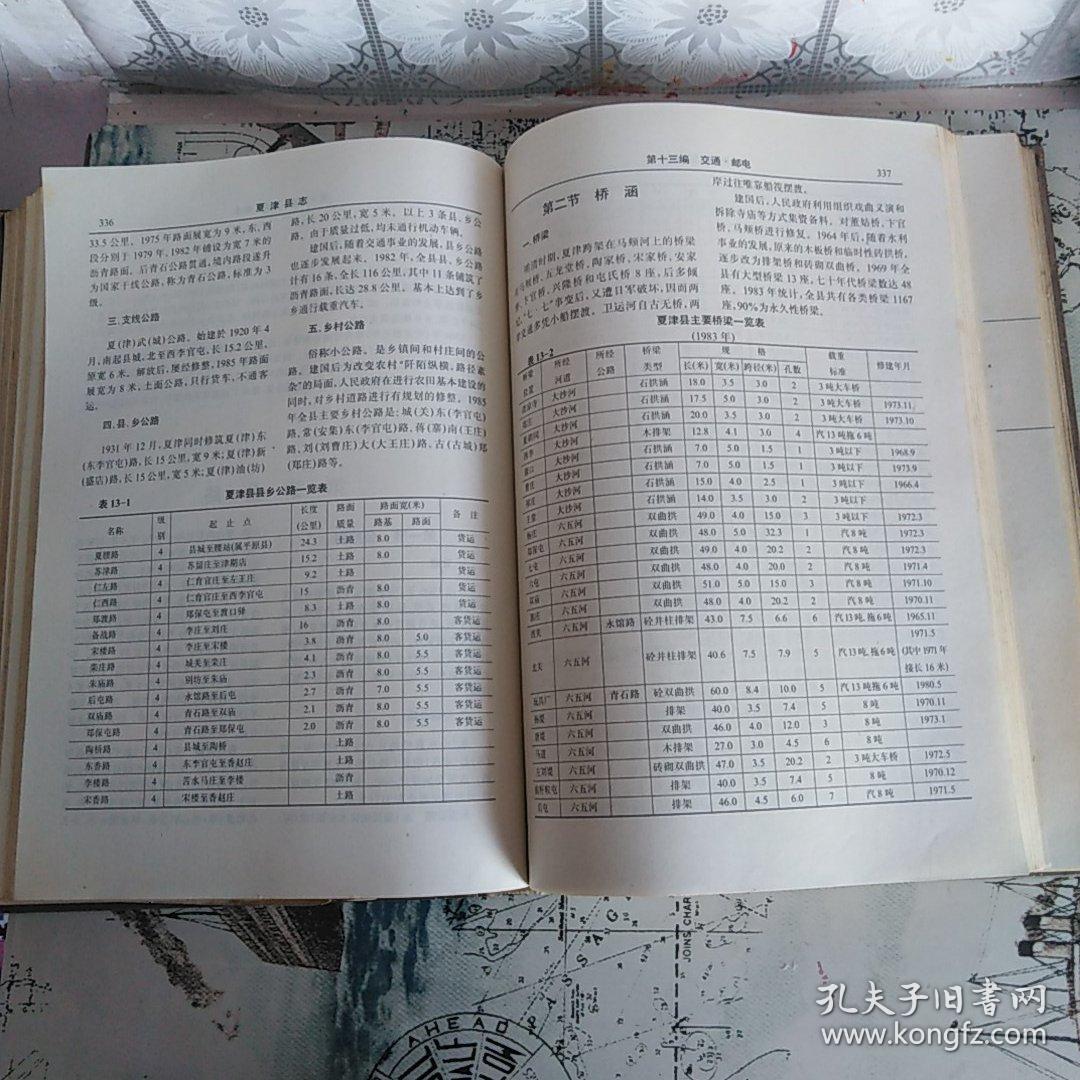 336
夏津县志
33.5公里。1975年路面展宽为9米,东、西
段分别于1979年、1982年铺设为宽7米的
沥青路面。后青石公路贯通,境内路段遂升
为国家干线公路,称为青石公路,标准为3
级。
三、支线公路
夏(津)武(城)公路。始建於1920年4
月,南起县城,北至西李官屯,长15.2公里,
原宽6米。解放后,屡经修整,1985年路面
展宽为8米,土面公路,只行货车,不通客
运。
四、县、乡公路
1931年12月,夏津同时修筑夏(津)东
(东李官屯)路,长15公里,宽9米;夏(津)新
(盛店)路,长15公里,宽5米;夏(津)油(坊)
路,长20公里,宽5米。以上3条县、乡公
路。由于质量过低,均未通行机动车辆。
建国后,随着交通事业的发展,县乡公路
也逐步发展起来。1982年,全县县、乡公路
计有16条,全长116公里,其中11条铺筑了
沥青路面,长达28.8公里。基本上达到了乡
乡通行载重汽车。
五、乡村公路
俗称小公路。是乡镇间和村庄间的公
路。建国后为改变农村“阡陌纵横,路径紊
杂”的局面,人民政府在进行农田基本建设的
同时,对乡村道路进行有规划的修整。1985
年全县主要乡村公路是:城(关)东(李官屯)
路,常(安集)东(李官屯)路、蒋(寨)南(王庄)
路、刘(刘曹庄)大(大王庄)路、古(古城)郑
(郑庄)路等。
夏津县县乡公路一览表
表13-1
名称 级别 起止点 长度(公里) 路面质量 路面宽(米) 路基 路面 备注
夏腰路 4 县城至腰站(属平原县) 24.3 土路 8.0 货运
苏津路 4 苏留庄至津期店 15.2 土路 8.0 货运
仁左路 4 仁育官庄至左王庄 9.2 土路 货运
仁西路 4 仁育官庄至西李官屯 15 沥青 8.0 货运
郑渡路 4 郑保屯至渡口驿 8.3 土路 8.0 货运
备战路 4 李庄至刘庄 16 沥青 8.0 客货运
宋楼路 4 李庄至宋楼 3.8 沥青 8.0 5.0 客货运
栾庄路 4 城关至栾庄 4.1 沥青 8.0 5.5 客货运
朱庙路 4 别坊至朱庙 2.3 沥青 8.0 5.5 客货运
后屯路 4 永馆路至后屯 2.7 沥青 7.0 5.5 客货运
双庙路 4 青石路至双庙 2.1 沥青 8.0 5.5 客货运
郑保屯路 4 青石路至郑保屯 2.0 沥青 8.0 5.5 客货运
陶桥路 4 县城至陶桥 土路
东香路 4 东李官屯至香赵庄 土路
李楼路 4 苦水马庄至李楼 沥青
宋香路 4 宋楼至香赵庄 土路
第十三编 交通·邮电
337
第二节 桥涵
一、桥梁
明清时期,夏津跨架在马颊河上的桥梁
马颊桥、五龙堂桥、陶家桥、宋家桥、安家
卞官桥、兴隆桥和屯氏桥8座,后多倾
“七·七”事变后,又遭日军破坏,因而两
交通多凭小船摆渡。卫运河自古无桥,两
岸过往唯靠船筏摆渡。
建国后,人民政府利用组织戏曲义演和
拆除寺庙等方式集资备料。对董姑桥、卞官
桥、马颊桥进行修复。1964年后,随着水利
事业的发展,原来的木板桥和临时性砖拱桥,
逐步改为排架桥和砖砌双曲拱。1969年全
县有大型桥梁13座,七十年代桥梁数达48
座。1983年统计,全县共有各类桥梁1167
座,90%为永久性桥梁。
夏津县主要桥梁一览表
(1983年)
表13-2
桥梁位置 所经河道 所经公路 桥梁类型 规格 长(米) 宽(米) 跨径(米) 孔数 载重标准 修建年月
大沙河 石拱涵 18.0 3.5 3.0 2 3吨大车桥
大沙河 石拱涵 17.5 5.0 3.0 2 3吨大车桥 1973.11
大沙河 石拱涵 20.0 3.5 3.0 2 3吨大车桥 1973.10
大沙河 木排架 12.8 4.1 3.0 4 汽13吨拖6吨
大沙河 石拱涵 7.0 5.0 1.5 1 3吨以下 1968.9
大沙河 石拱涵 7.0 5.0 1.5 1 3吨以下 1973.9
大沙河 石拱涵 7.0 5.0 2.5 1 3吨以下 1966.4
大沙河 石拱涵 15.0 4.0 2.5 3 3吨以下
大沙河 石拱涵 14.0 3.5 3.0 2 3吨以下
六五河 双曲拱 49.0 4.0 15.0 3 3吨以下 1972.3
郑保屯 六五河 双曲拱 48.0 5.0 32.3 1 汽8吨 1972.3
七屯 六五河 双曲拱 49.0 4.0 20.2 2 汽8吨 1971.4
六屯 六五河 双曲拱 48.0 4.0 20.2 2 汽8吨 1971.10
双庙 六五河 双曲拱 51.0 5.0 15.0 3 汽8吨 1970.11
六五河 双曲拱 48.0 4.0 20.2 2 汽8吨
西关 六五河 永馆路 砼井柱排架 43.0 7.5 6.6 6 汽13吨,拖6吨 1965.11
北关 六五河 砼井柱排架 40.6 7.5 7.9 5 汽13吨,拖6吨 1971.5(其中1971年接长16米)
玩具厂 六五河 青石路 砼双曲拱 60.0 8.4 10.0 5 汽13吨拖6吨 1980.5
六五河 排架 40.0 3.5 7.4 5 8吨 1970.11
六五河 双曲拱 46.0 4.0 12.0 3 8吨 1973.1
马道 六五河 木排架 27.0 3.0 4.5 6 8吨
左刘堤 六五河 砖砌双曲拱 47.0 3.5 20.2 2 3吨大车桥 1972.5
六五河 排架 40.0 3.5 7.4 5 8吨 1970.12
后屯 六五河 排架 46.0 4.5 6.0 7 汽8吨 1971.5
AHEAD
PASSAG
JOINS CHAR
孔夫子旧书网
www.kongfz.com